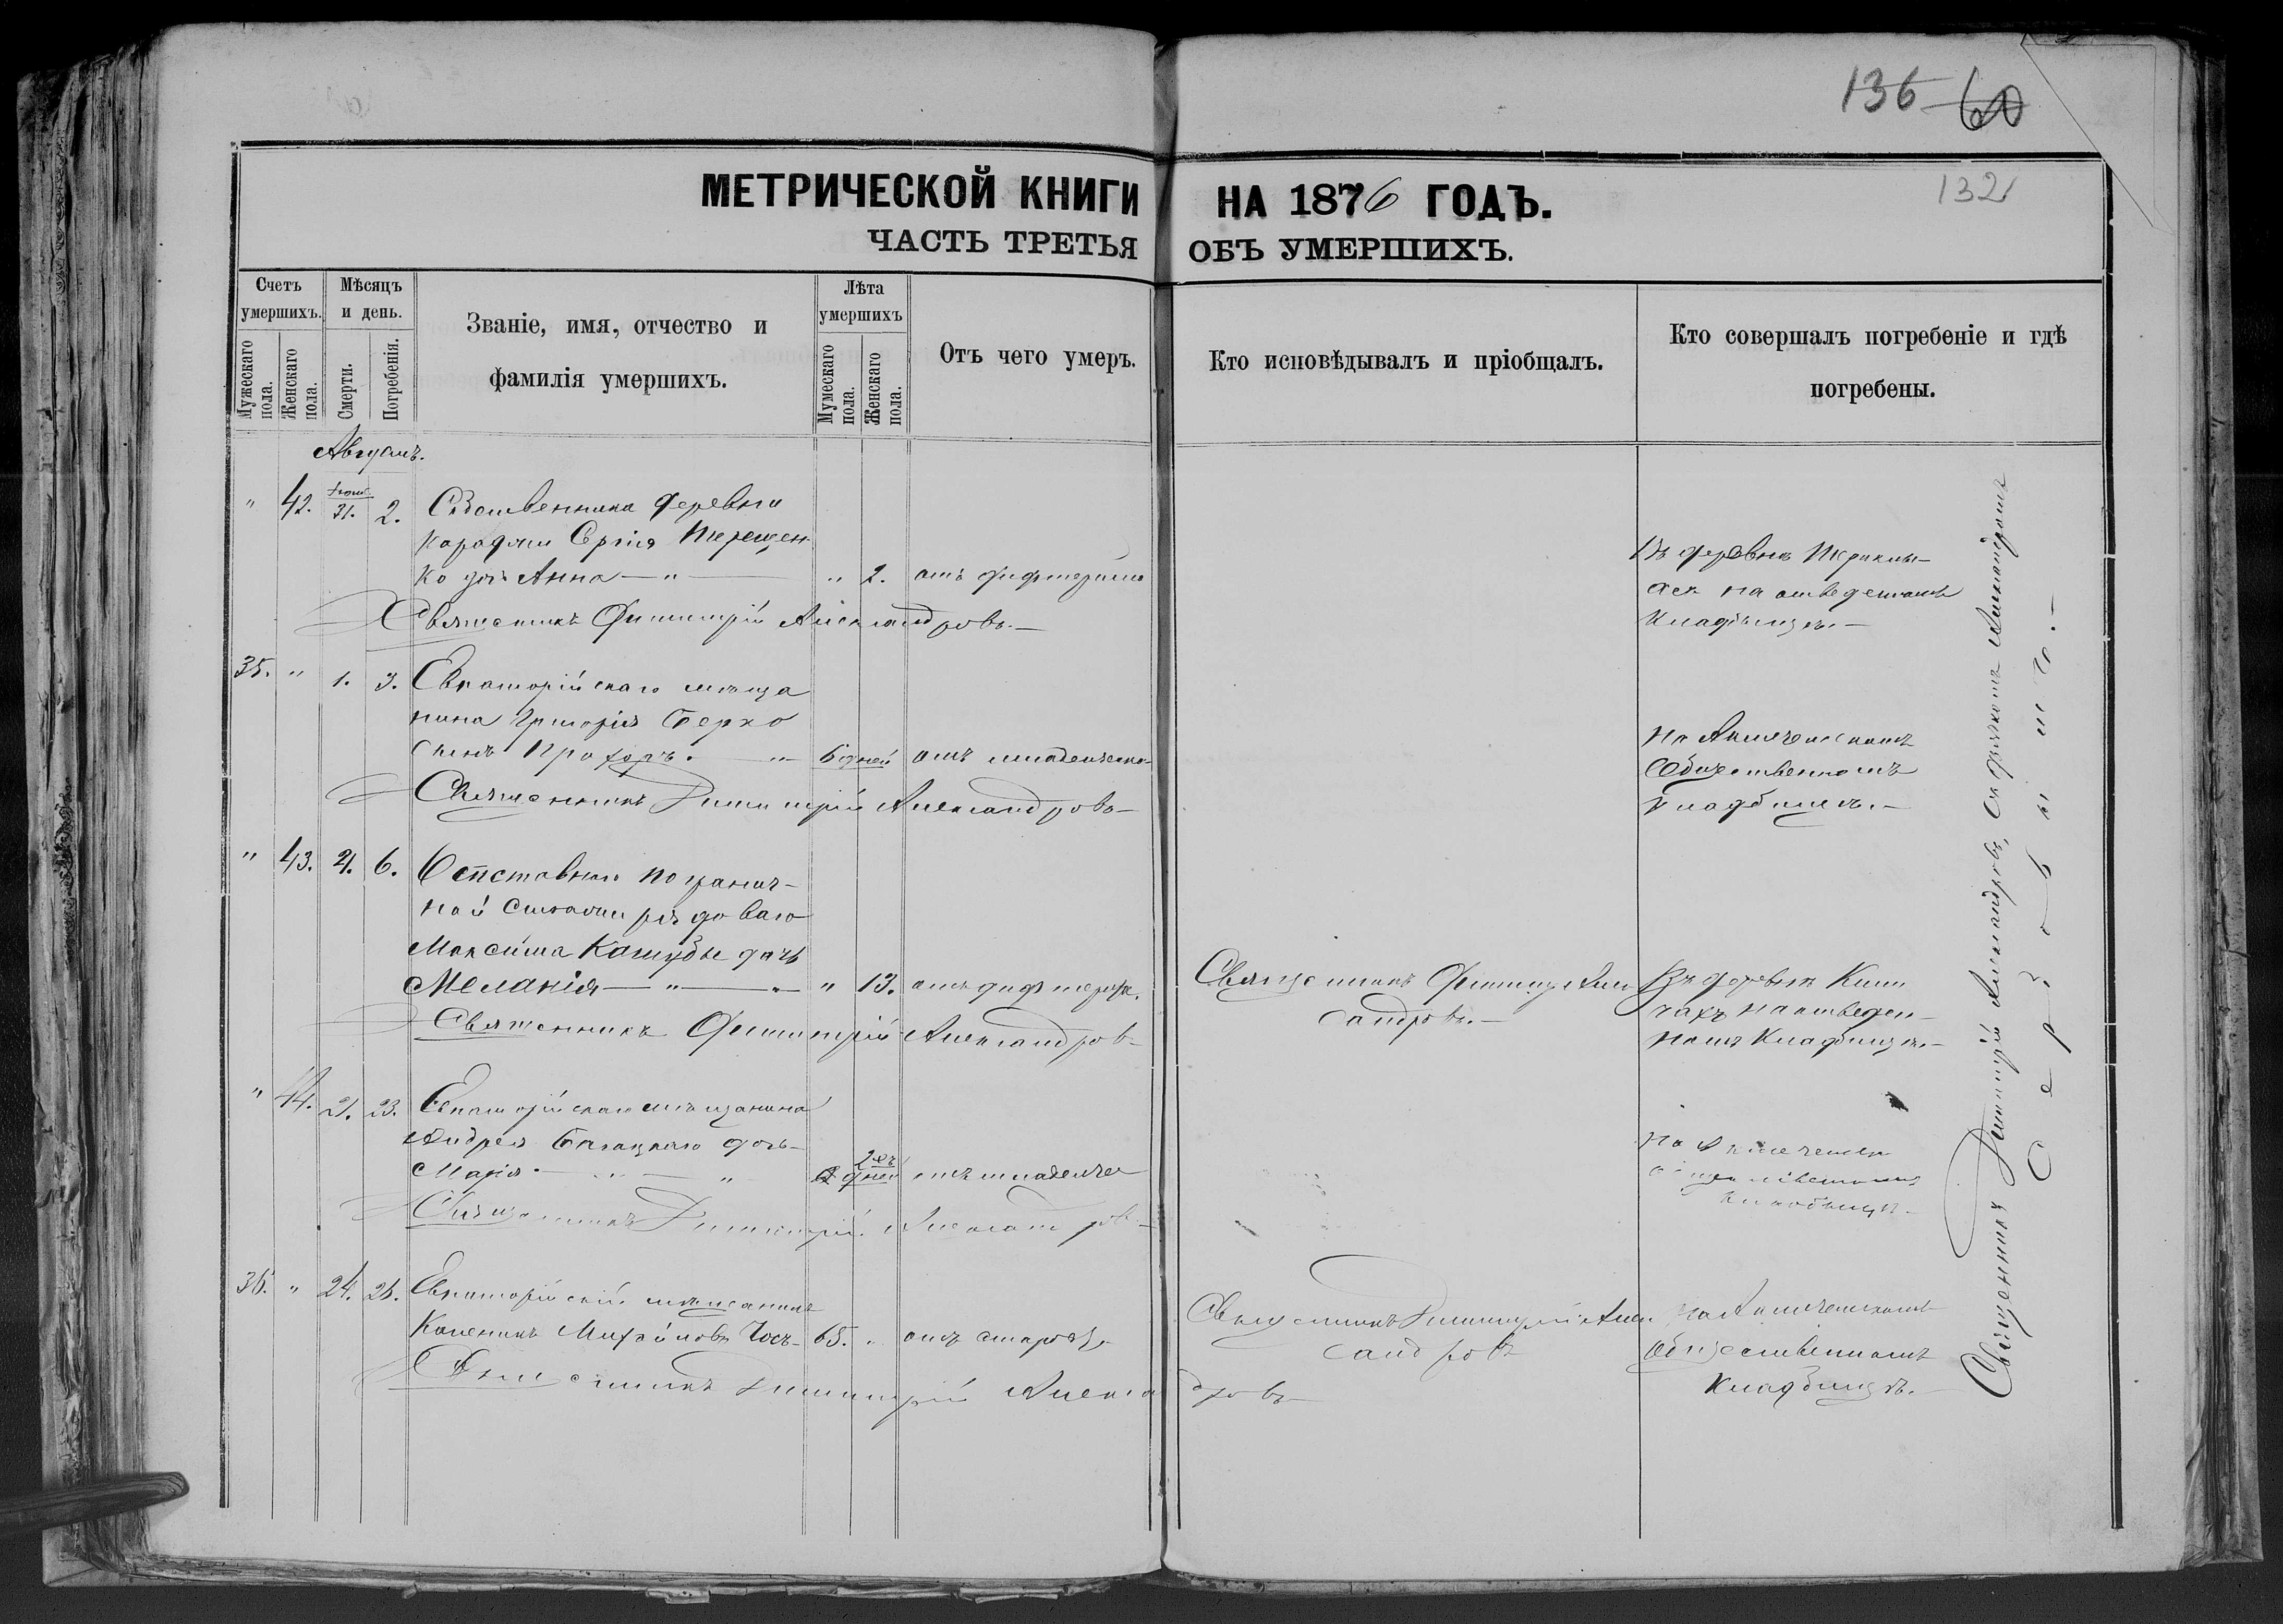 136 60
132
МЕТРИЧЕСКОЙ КНИГИ НА 1876 ГОДЪ.
ЧАСТЬ ТРЕТЬЯ ОБЪ УМЕРШИХЪ.
Счетъ умершихъ.
Мужескаго пола.
Женскаго пола.
Мѣсяцъ и день.
Смерти.
Погребенія.
Званіе, имя, отчество и
фамилія умершихъ.
Лѣта умершихъ
Мумескаго пола.
Женскаго пола.
Отъ чего умеръ.
Кто исповѣдывалъ и пріобщалъ.
Кто совершалъ погребеніе и гдѣ
погребены.
Августъ.
" 42. 31. 2. деревни
Сергія Терещен
ко дочь Анна — " — " 2. отъ дифтерита
Въ деревнѣ
на отведенномъ
кладбищѣ. —
Священникъ Димитрій Александровъ. —
35. " 1. 3. Евпаторійскаго мѣща
нина Григорія Верхо
сынъ Прохоръ. " 6 дней отъ младенческо
На Акмечетскомъ
общественномъ
кладбищѣ. —
Священникъ Димитрій Александровъ —
" 43. 4. 6. Отставнаго погранич-
ной стражи рядоваго
Максима Кашубы дочь
Меланія — " — " — " 13. отъ дифтерита.
Священникъ Димитрій Алек
сандровъ. —
Въ деревнѣ
на отведен-
номъ кладбищѣ. —
Священникъ Димитрій Александровъ
" 44. 21. 23. Евпаторійскаго мѣщанина
Андрея дочь —
Марія — " — " 2хъ дней отъ младенчес
На Акмечетск
общественномъ
кладбищѣ. —
Священникъ Димитрій Александров —
36. " 24. 26. Евпаторійскій мѣщанинъ
Михайловъ 65. " отъ старости
Священникъ Димитрій Алек
сандровъ
на Акмечетскомъ
общественномъ
кладбищѣ. —
Священникъ Димитрій Александровъ —
Священникъ Димитрій Александровъ,